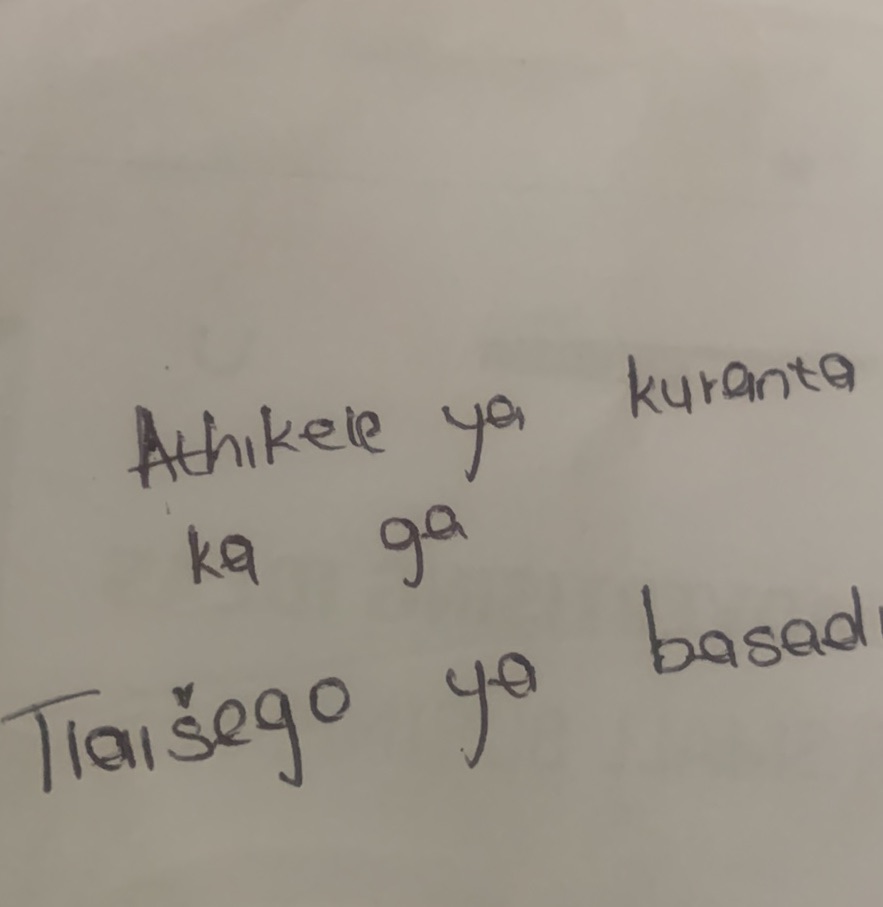 Athikele ya kuranta
ka ga
Tlaišego ya basadi